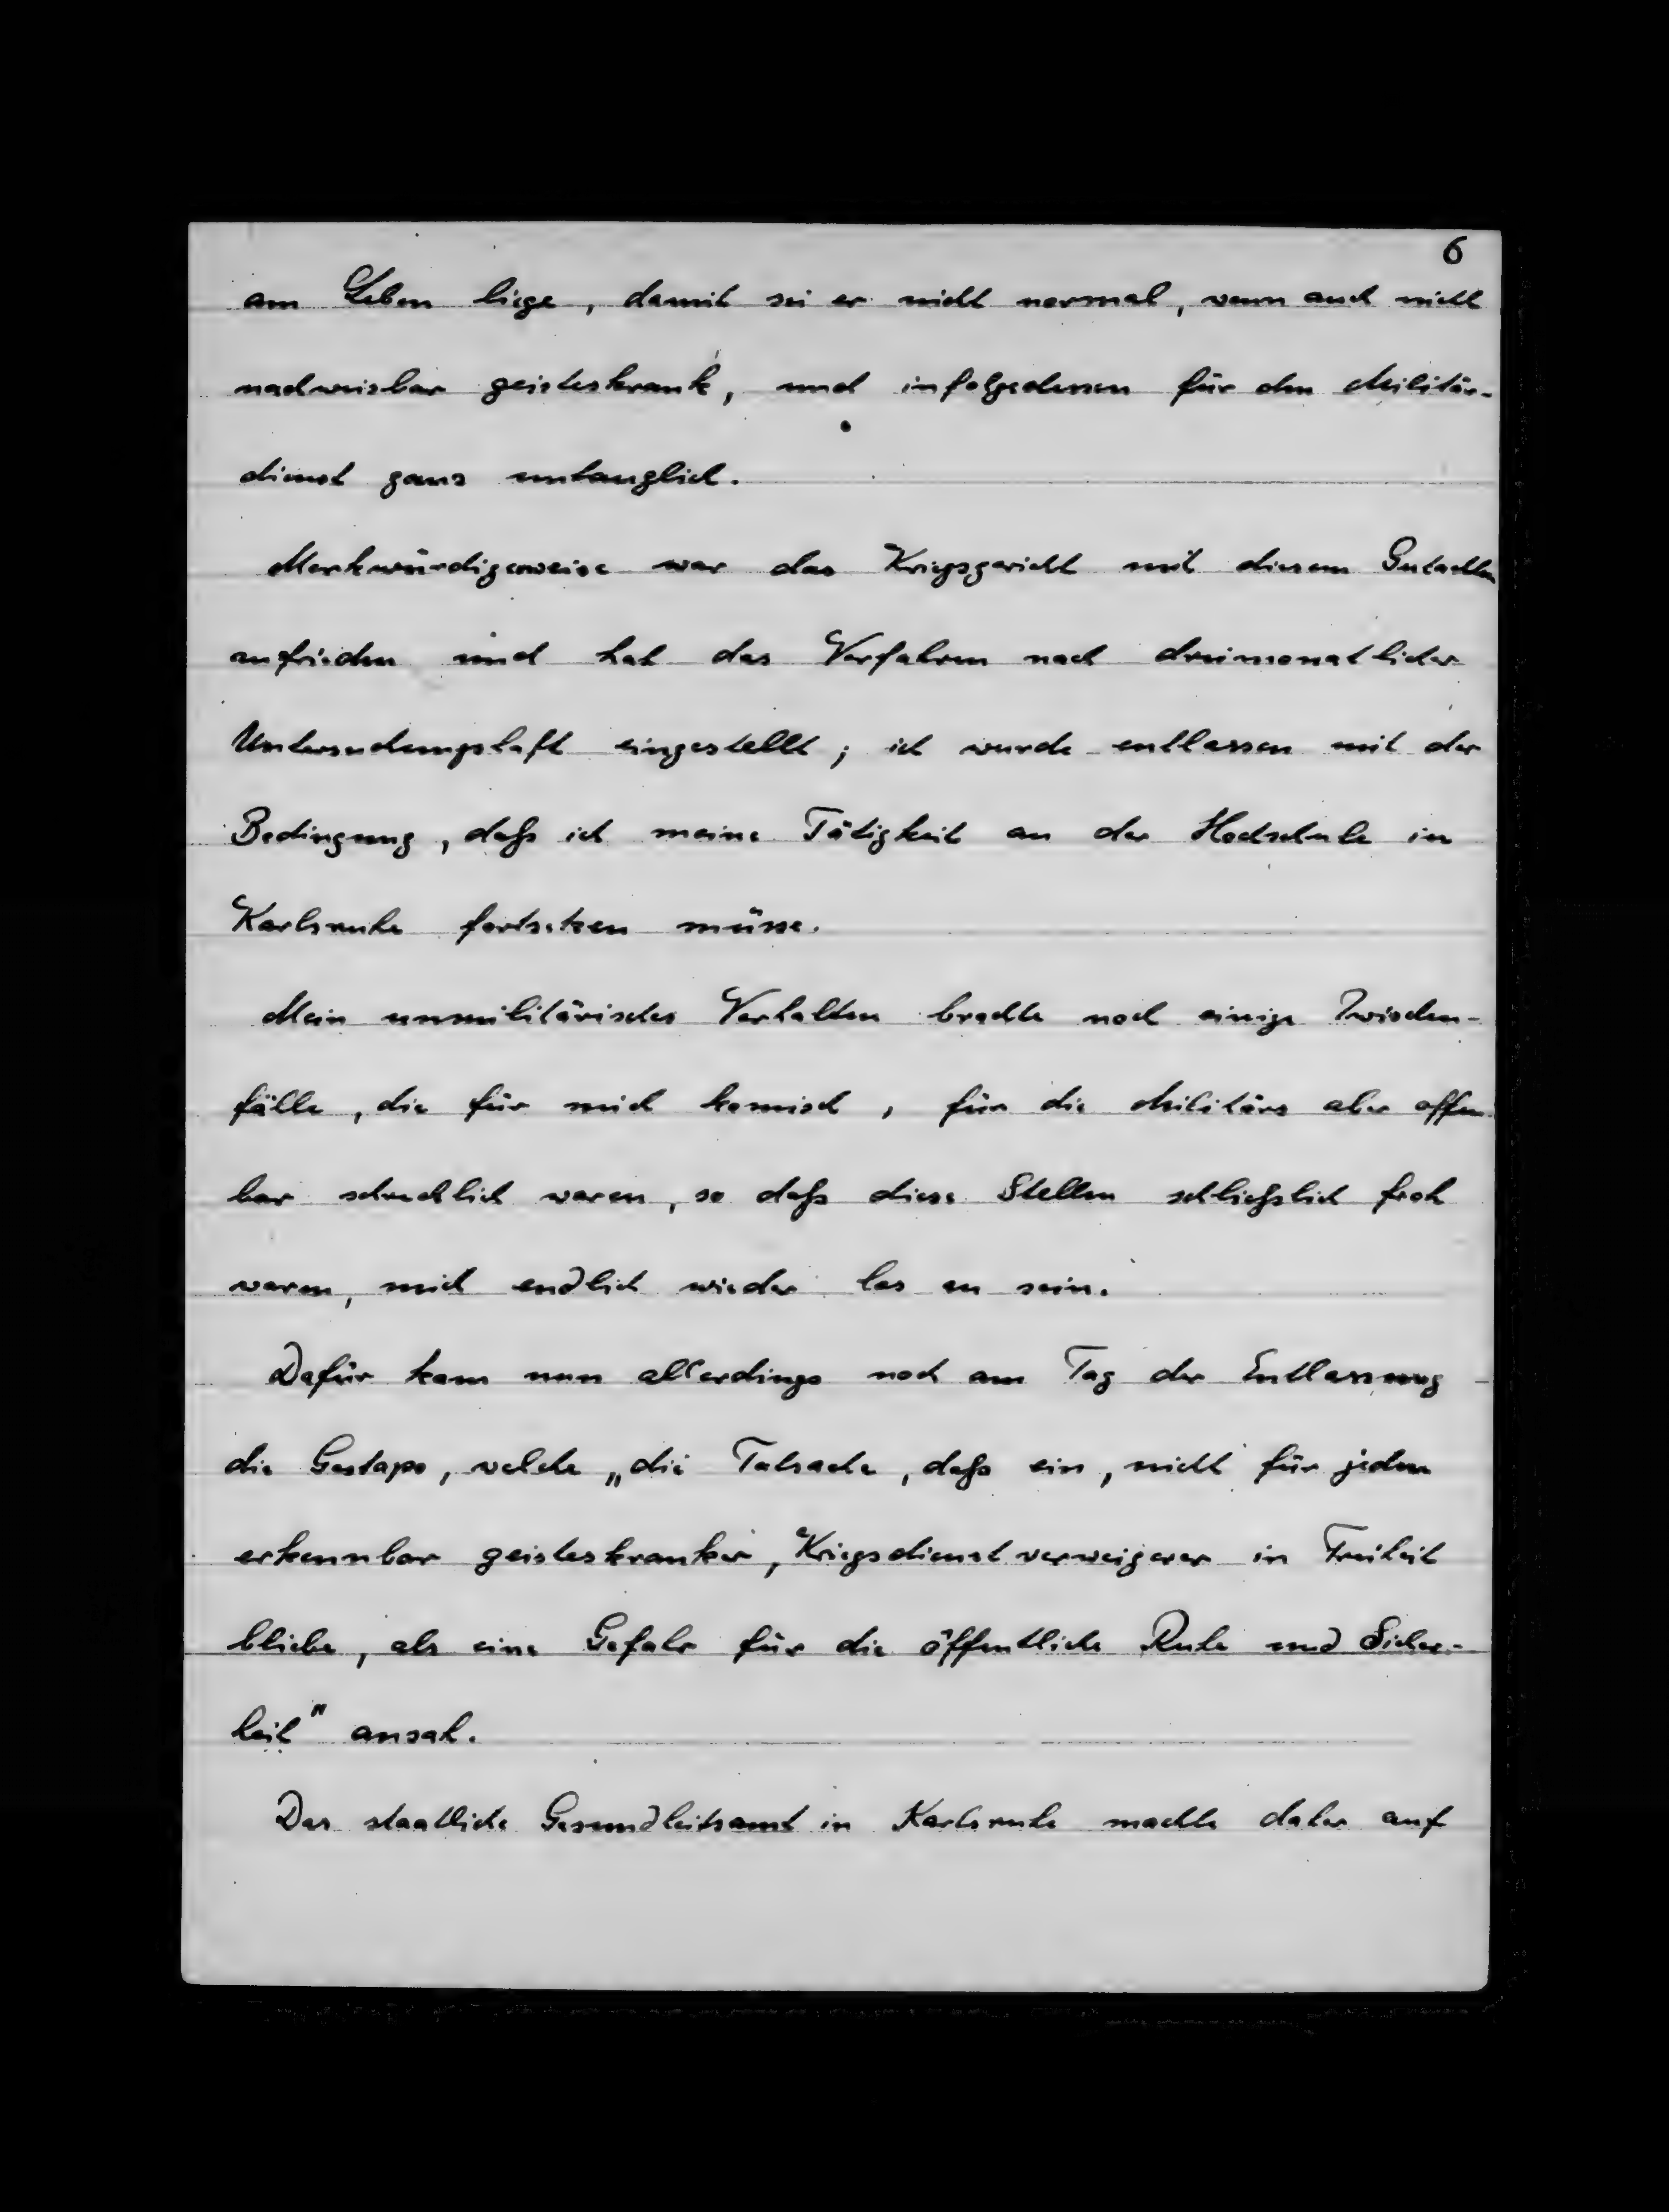 6
am Leben liege, damit sei er nicht normal, wenn auch nicht
nachweisbar geisteskrank, und infolgedessen für den Militär-
dienst ganz untauglich.
Merkwürdigerweise war das Kriegsgericht mit diesem Gutachten
zufrieden und hat das Verfahren nach dreimonatlicher
Untersuchungshaft eingestellt; ich wurde entlassen mit der
Bedingung, daß ich meine Tätigkeit an der Hochschule in
Karlsruhe fortsetzen müsse.
Mein unmilitärisches Verhalten brachte noch einige Zwischen-
fälle, die für mich komisch, für die Militärs aber offen-
bar schrecklich waren, so daß diese Stellen schließlich froh
waren, mich endlich wieder los zu sein.
Dafür kam nun allerdings noch am Tag der Entlassung
die Gestapo, welche „die Tatsache, daß ein, nicht für jeden
erkennbar geisteskranker, Kriegsdienstverweigerer in Freiheit
bliebe, als eine Gefahr für die öffentliche Ruhe und Sicher-
heit" ansah.
Das staatliche Gesundheitsamt in Karlsruhe machte daher auf